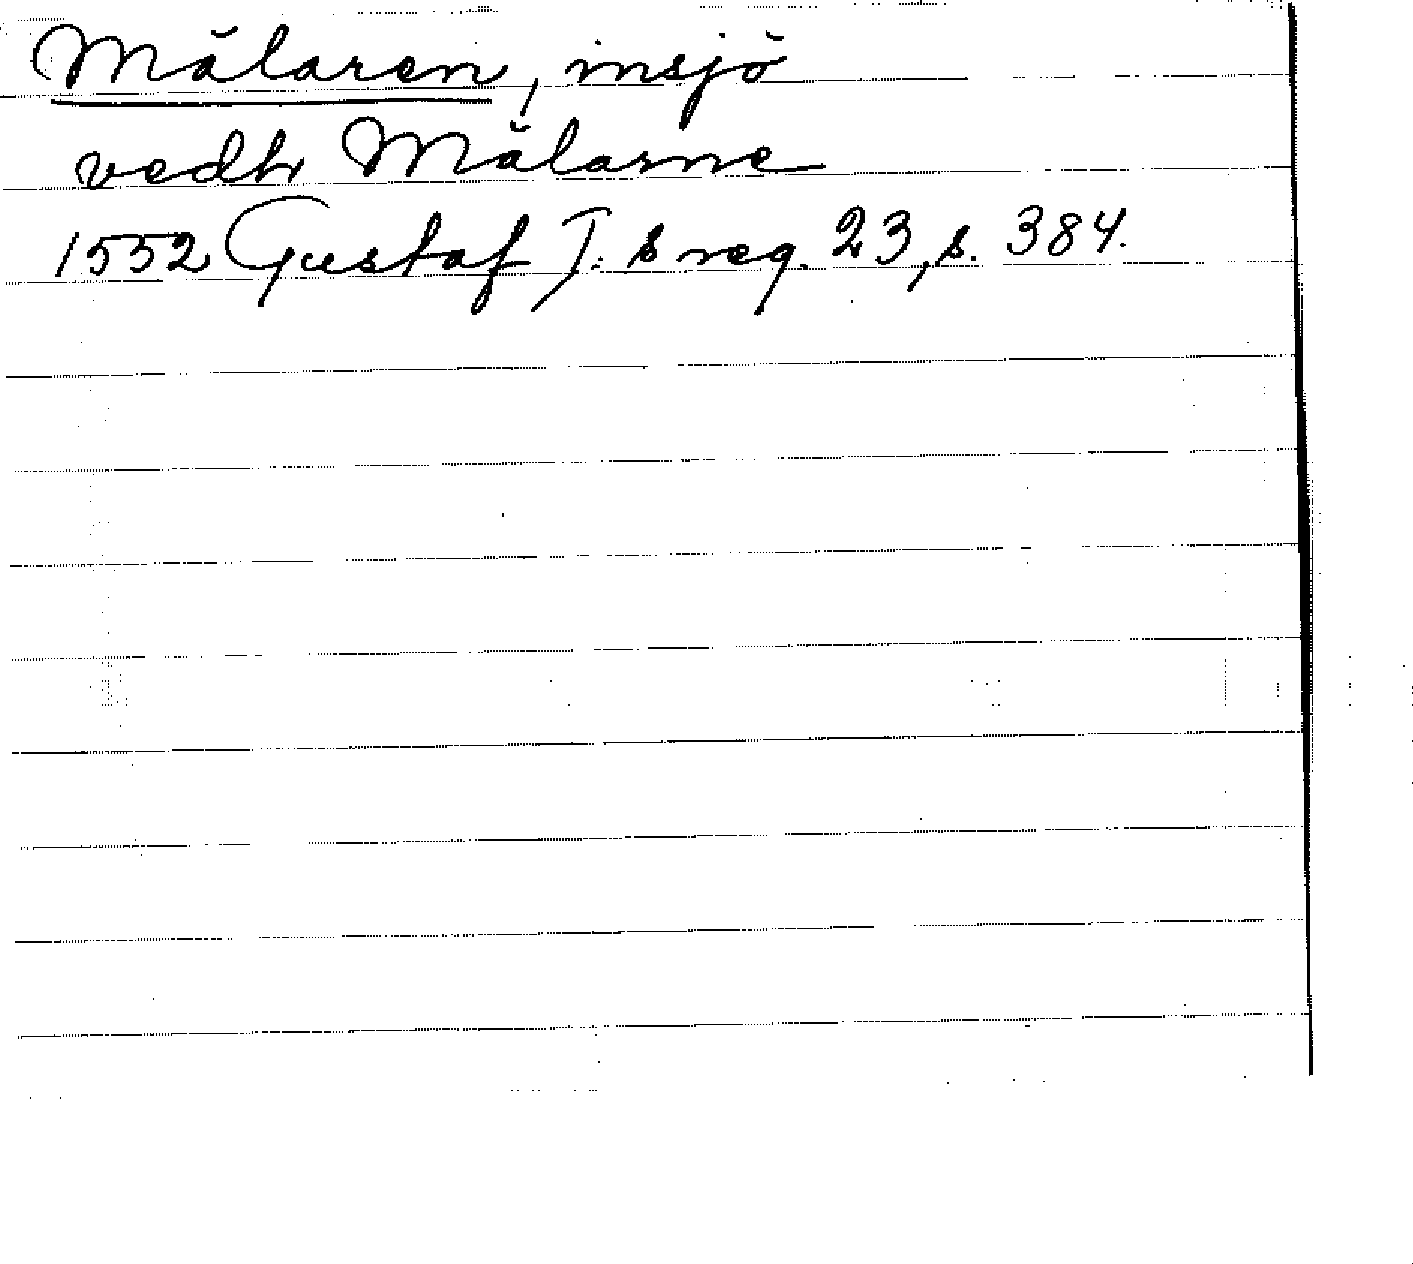 Mälaren, insjö
vedh Mälarne
1552 Gustaf I:s reg. 23, s. 384.